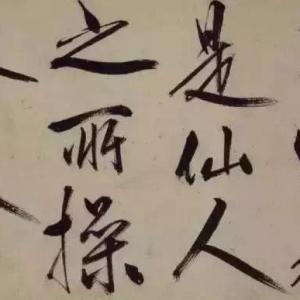 是仙人
之所操